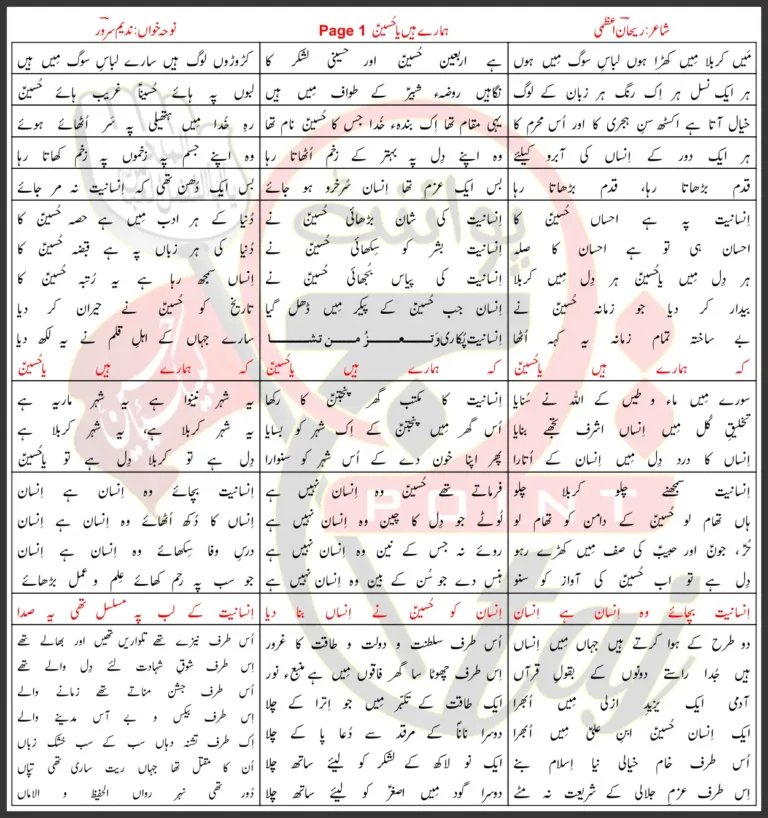 شاعر: ریحان اعظمی ہمارے ہیں یا حُسینؑ Page 1 نوحہ خواں: ندیم سرور
مَیں کربلا مِیں کھڑا ہوں لباسِ سوگ مِیں ہوں ہے اربعینِ حُسینؑ اور حسینی لشکر کا کڑوڑوں لوگ ہیں سارے لباسِ سوگ مِیں ہیں
ہر ایک نسل ہر اِک رنگ ہر زبان کے لوگ نگاہیں روضہء شبیرؑ کے طواف مِیں ہیں لبوں پہ ہائے حُسیناؑ غریب ہائے حُسینؑ
خیال آتا ہے اکسٹھ سنِ ہجری کا اور اُس محرم کا یہی مقام تھا اِک بندہء خُدا جس کا حُسینؑ نام تھا رہِ خُدا مِیں ہتھیلی پہ سَر اُٹھائے ہوئے
ہر ایک دور کے اِنساں کی آبرو کیلئے وہ اپنے دِل پہ بہتر کے زخم اُٹھاتا رہا وہ اپنے جسم پہ زخموں پہ زخم کھاتا رہا
قدم بڑھاتا رہا، قدم بڑھاتا رہا بس ایک عزم تھا اِنسان سُرخرو ہو جائے بس ایک دُھن تھی کہ اِنسانیت نہ مر جائے
اِنسانیت پہ ہے احساں حُسینؑ کا اِنسانیت کی شان بڑھائی حُسینؑ نے دُنیا کے ہر ادب مِیں ہے حصہ حُسینؑ کا
احسان ہی تو ہے احسان کا صلہ اِنسانیت بشر کو سِکھائی حُسینؑ نے دُنیا کی ہر زباں پہ ہے قبضہ حُسینؑ کا
ہر دِل مِیں یا حُسینؑ ہر دِل مِیں کربلا اِنسانیت کی پیاس بُجھائی حُسینؑ نے اِنساں سمجھ رہا ہے یہ رُتبہ حُسینؑ کا
بیدار کر دیا جو زمانہ حُسینؑ نے اِنسان جب حُسینؑ کے پیکر مِیں ڈھل گیا تاریخ کو حُسینؑ نے حیران کر دیا
بے ساختہ تمام زمانہ یہ کہہ اُٹھا اِنسانیت پُکاری وَتعزُ من تشا سارے جہاں کے اہلِ قلم نے یہ لکھ دیا
کہ ہمارے ہیں یا حُسینؑ کہ ہمارے ہیں یا حُسینؑ کہ ہمارے ہیں یا حُسینؑ
سورے مِیں ماء و طیں کے اللہ نے سُنایا اِنسانیت کا مکتب گھر پنجتنؑ کا رکھا یہ شہرِ نینوا ہے یہ شہرِ ماریہ ہے
تخلیقِ کُل مِیں اِنساں اشرف تجھے بنایا اُس گھر مِیں پنجتنؑ کے اِک شہر کو بسایا یہ شہرِ کربلا ہے، یہ شہرِ کربلا ہے
اِنساں کا درد دِل مِیں اِنسان کے اُتارا پھر اپنا خون دے کے اُس شہر کو سنوارا دِل ہے تو کربلا دِل ہے تو یا حُسینؑ
اِنسانیت سمجھنے چلو کربلا چلو فرماتے تھے حُسینؑ وہ اِنسان نہیں ہے اِنسانیت بچائے وہ اِنسان ہے اِنسان
ہاں تھام لو حُسینؑ کے دامن کو تھام لو لُوٹے جو دِل کا چین وہ اِنسان نہیں ہے اِنساں کا دُکھ اُٹھائے وہ اِنسان ہے اِنسان
حُرؑ، جونؑ اور حبیبؑ کی صف مِیں کھڑے رہو روئے نہ جس کے نین وہ اِنسان نہیں ہے درسِ وفا سِکھائے وہ اِنسان ہے اِنسان
دِل ہے تو اب حُسینؑ کی آواز کو سنو ہنس دے جو سُن کے بین وہ اِنسان نہیں ہے جو سب پہ رحم کھائے عِلم و عمل بڑھائے
اِنسانیت بچائے وہ اِنسان ہے اِنسان اِنسان کو حُسینؑ نے اِنساں بنا دیا اِنسانیت کے لب پہ مسلسل تھی یہ صدا
دو طرح کے ہوا کرتے ہیں جہاں مِیں اِنساں اُس طرف سلطنت و دولت و طاقت کا غرور اُس طرف نیزے تھے تلواریں تھیں اور بھالے تھے
ہیں جُدا راستے دونوں کے بقولِ قرآں اِس طرف چھوٹا سا گھر فاقوں مِیں ہے منبعء نور اِس طرف شوقِ شہادت لئے دِل والے تھے
آدمی ایک یزیدِ ازلی مِیں اُبھرا ایک طاقت کے تکبّر مِیں جو اِترا کے چلا اُس طرف جشن مناتے تھے زمانے والے
ایک اِنسان حُسینؑ ابنِ علیؑ مِیں اُبھرا دوسرا ناناؐ کے مرقد سے دُعا پا کے چلا اِس طرف بیکس و بے آس مدینے والے
اُس طرف خام خیالی نیا اِسلام بنے ایک نو لاکھ کے لشکر کو لیئے ساتھ چلا اِک طرف تشنہ دہاں سب کے سب خشک زباں
اِس طرف عزمِ جلالی کے شریعت نہ مٹے دوسرا گود مِیں اصغرؑ کو لیئے ساتھ چلا اُن کا مقتل تھا جہاں ریت ساری تھی تپاں
دُور تھی نہرِ رواں الحفیظ و الاماں
پوائنٹ
POINT
taj